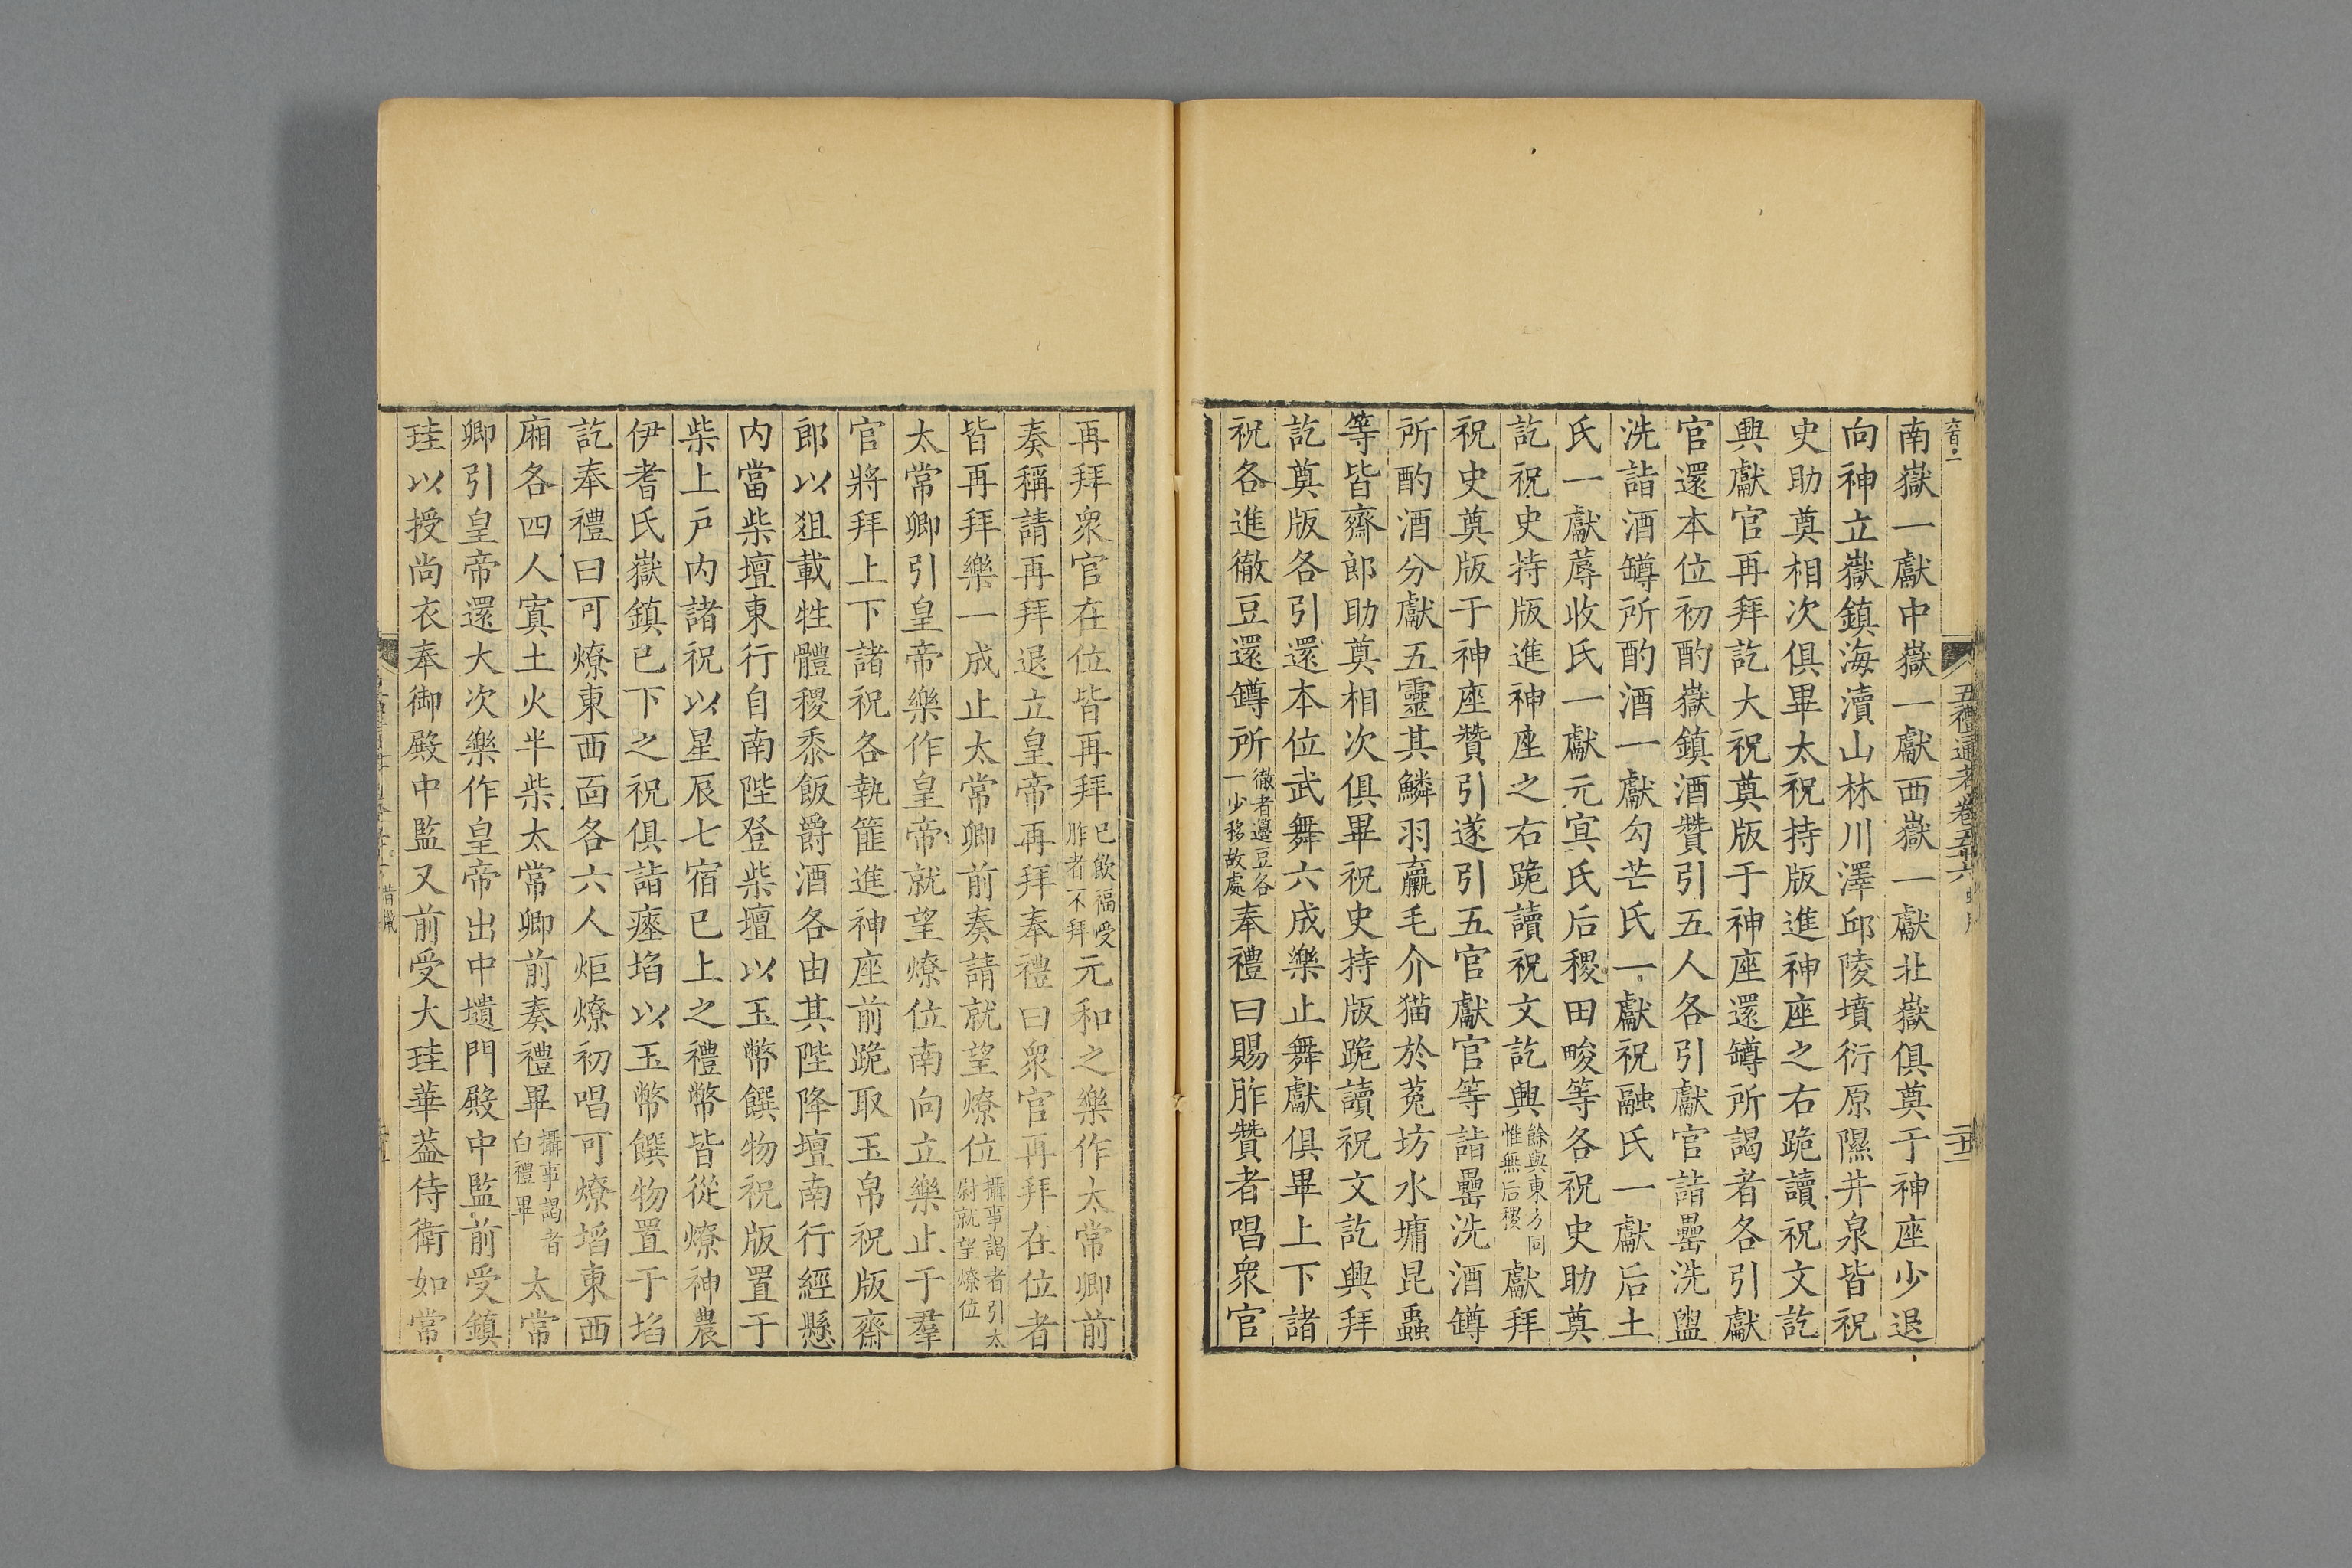 五禮通考卷五十六
南嶽一獻中嶽一獻西嶽一獻北嶽俱奠于神座少退
向神立嶽鎮海瀆山林川澤邱陵墳衍原隰井泉皆祝
史助奠相次俱畢太祝持版進神座之右跪讀祝文訖
興獻官再拜訖大祝奠版于神座還罇所謁者各引獻
官還本位初酌嶽鎮酒贊引五人各引獻官詣罍洗盥
洗詣酒罇所酌酒一獻勾芒氏一獻祝融氏一獻后土
氏一獻蓐收氏一獻元冥氏后稷田畯等各祝史助奠
訖祝史持版進神座之右跪讀祝文訖興餘與東方同惟無后稷獻拜
祝史奠版于神座贊引遂引五官獻官等詣罍洗酒罇
所酌酒分獻五靈其鱗羽臝毛介猫於菟坊水墉昆蟲
等皆齋郎助奠相次俱畢祝史持版跪讀祝文訖興拜
訖奠版各引還本位武舞六成樂止舞獻俱畢上下諸
祝各進徹豆還罇所徹者籩豆各一少移故處奉禮曰賜胙贊者唱衆官
再拜衆官在位皆再拜已飲福受胙者不拜元和之樂作太常卿前
奏稱請再拜退立皇帝再拜奉禮曰衆官再拜在位者
皆再拜樂一成止太常卿前奏請就望燎位攝事謁者引太尉就望燎位
太常卿引皇帝樂作皇帝就望燎位南向立樂止于羣
官將拜上下諸祝各執篚進神座前跪取玉帛祝版齋
郎以俎載牲體稷黍飯爵酒各由其陛降壇南行經懸
内當柴壇東行自南陛登柴壇以玉幣饌物祝版置于
柴上戸内諸祝以星辰七宿已上之禮幣皆從燎神農
伊耆氏嶽鎮已下之祝俱詣瘞埳以玉幣饌物置于埳
訖奉禮曰可燎東西面各六人炬燎初唱可燎埳東西
廂各四人寘土火半柴太常卿前奏禮畢攝事謁者白禮畢太常
卿引皇帝還大次樂作皇帝出中壝門殿中監前受鎮
珪以授尚衣奉御殿中監又前受大珪華葢侍衛如常